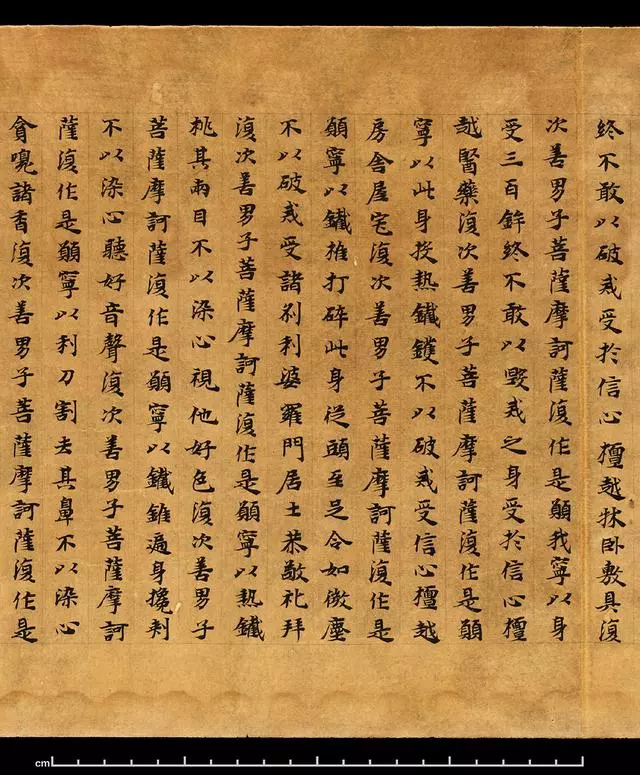 終不敢以破戒受於信心檀越牀卧敷具復
次善男子菩薩摩訶薩復作是願我寧以身
受三百鉾終不敢以毀戒之身受於信心檀
越醫藥復次善男子菩薩摩訶薩復作是願
寧以此身投熱鐵鑊不以破戒受信心檀越
房舍屋宅復次善男子菩薩摩訶薩復作是
願寧以鐵椎打碎此身從頭至足令如微塵
不以破戒受諸刹利婆羅門居士恭敬礼拜
復次善男子菩薩摩訶薩復作是願寧以熱鐵
挑其兩目不以染心視他好色復次善男子
菩薩摩訶薩復作是願寧以鐵錐遍身攙刺
不以染心聽好音聲復次善男子菩薩摩訶
薩復作是願寧以利刀割去其鼻不以染心
貪嗅諸香復次善男子菩薩摩訶薩復作是
cm